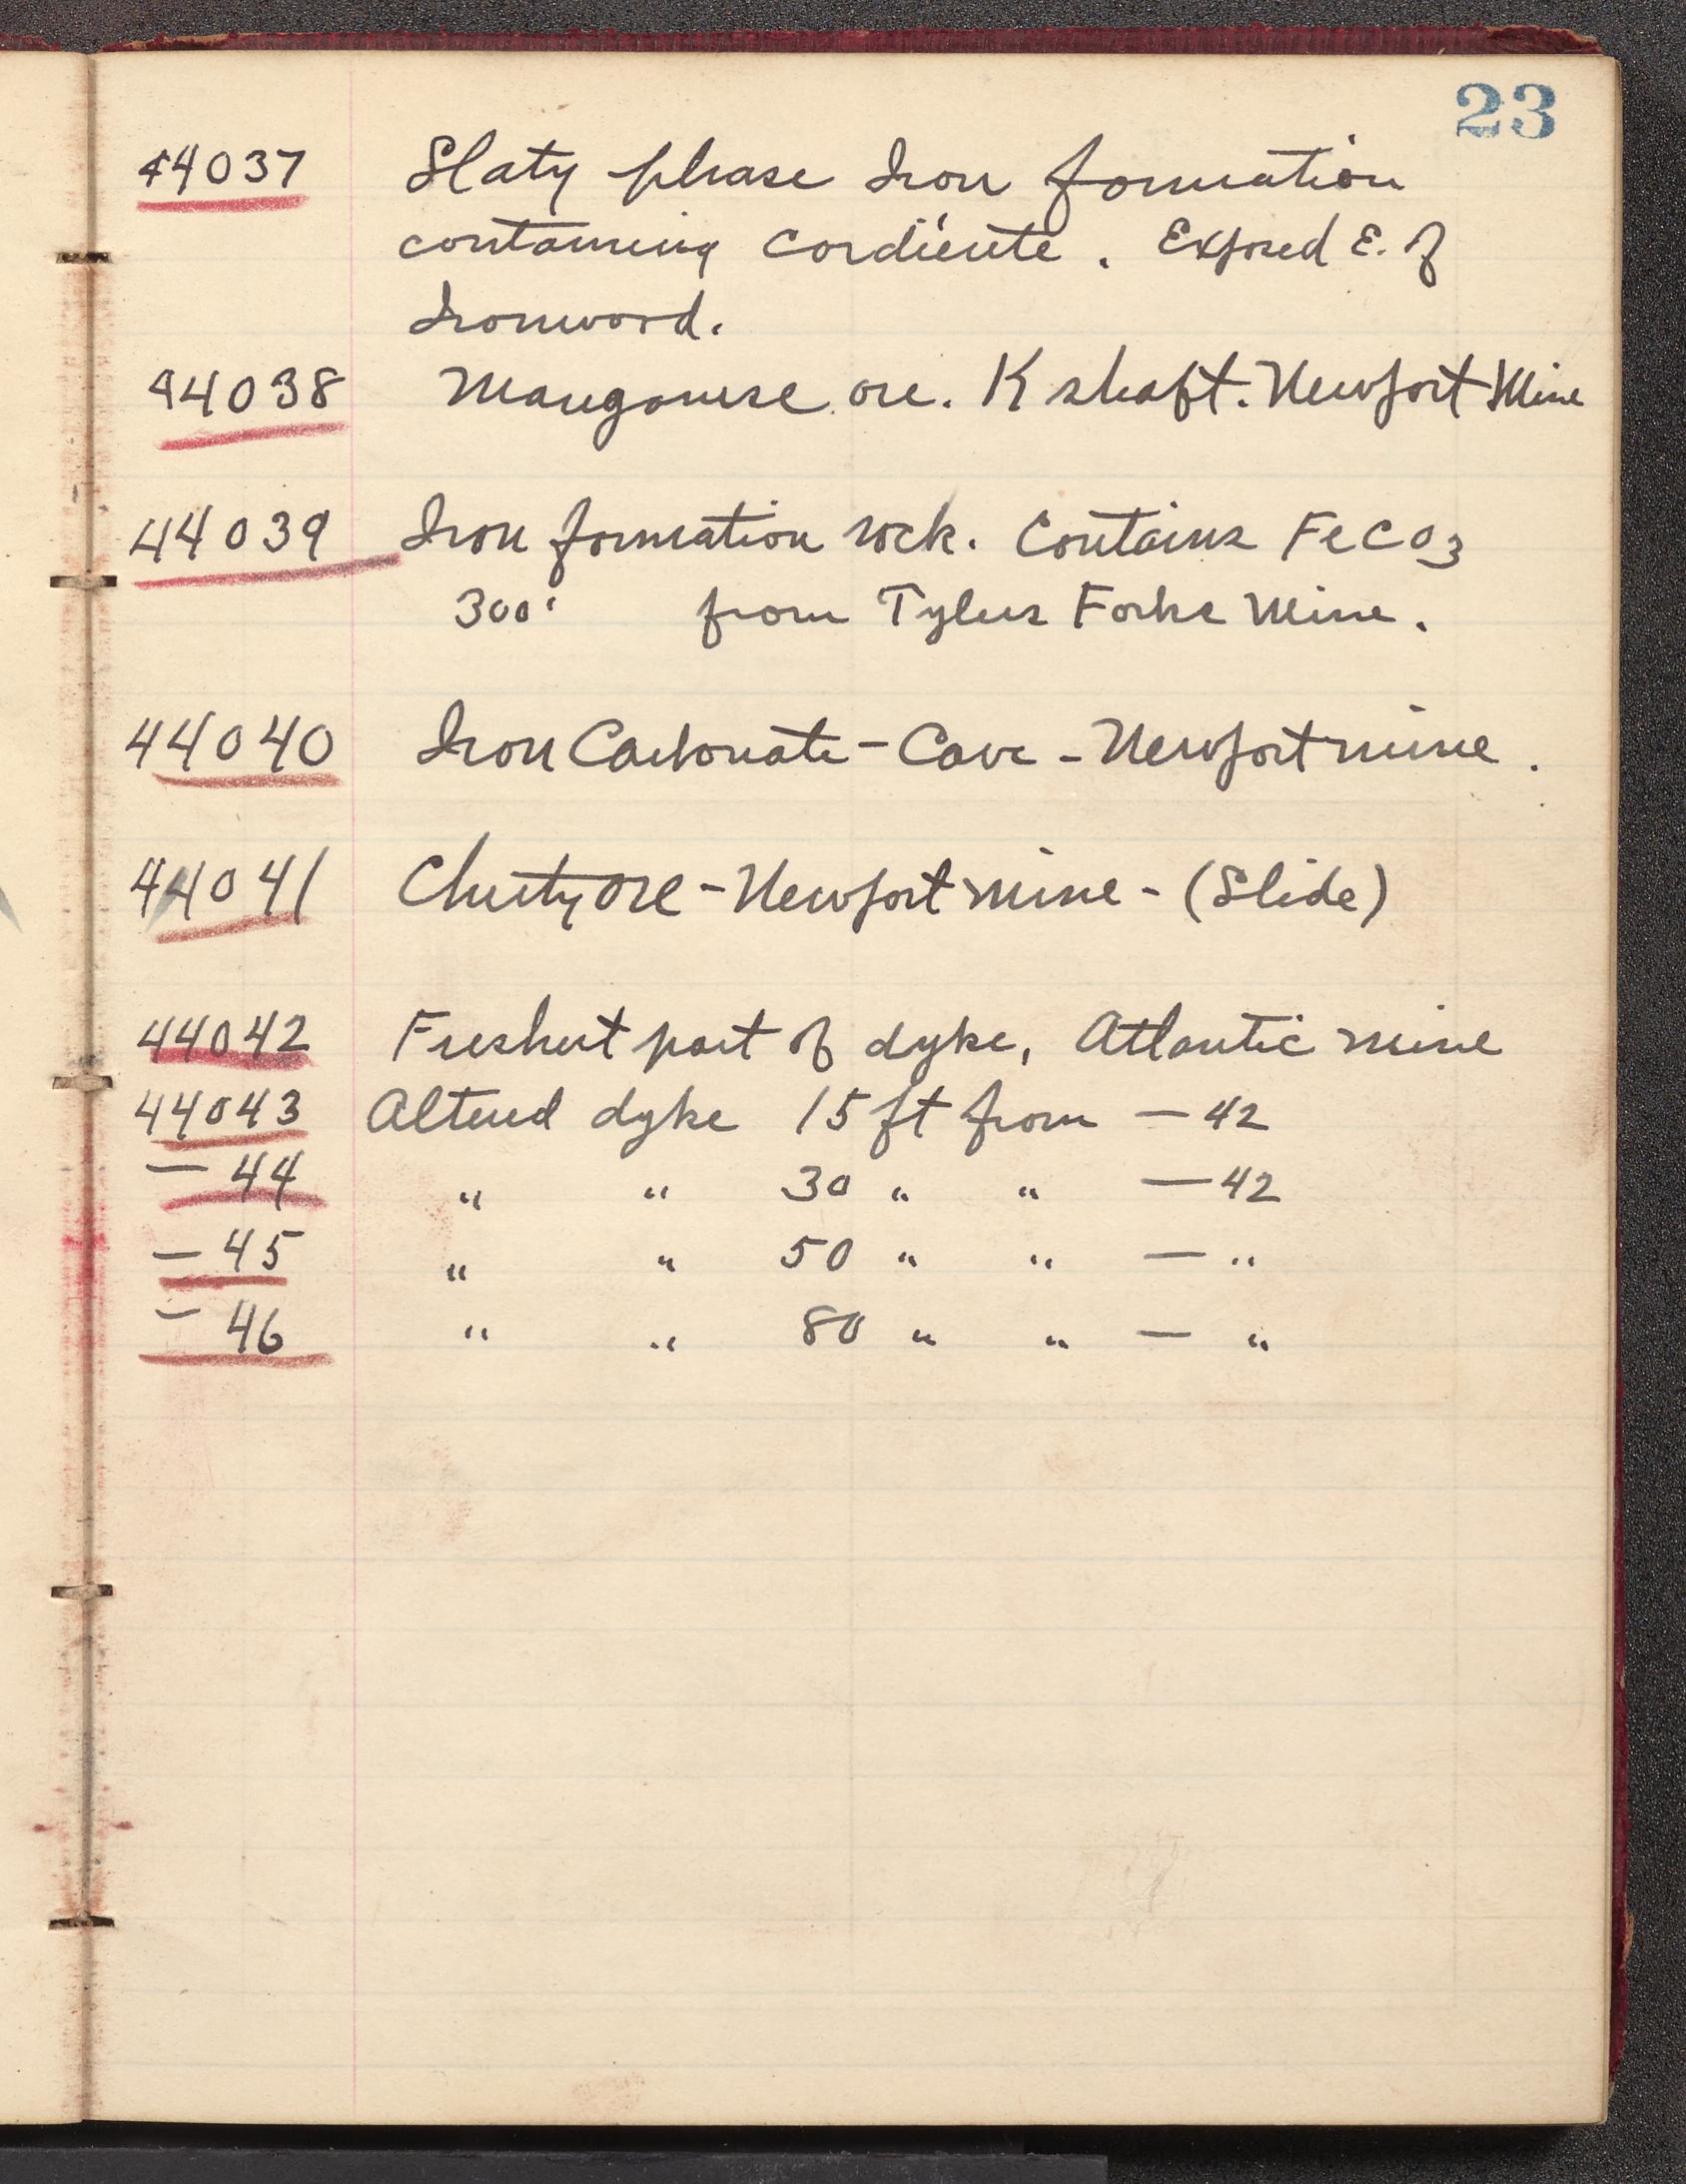 23
44037 Slaty phase Iron formation
containing Cordierite. Exposed E. of
Ironwood.
44038 Manganese ore. K shaft. Newport Mine
44039 Iron formation rock. Contains FeCO3
300' from Tylers Forks Mine.
44040 Iron Carbonate - Cave - Newport mine.
44041 Cherty ore - Newport mine - (Slide)
44042 Freshest part of dyke, Atlantic mine
44043 Altered dyke 15 ft from — 42
— 44 " " 30 " " — 42
— 45 " " 50 " " — "
— 46 " " 80 " " — "